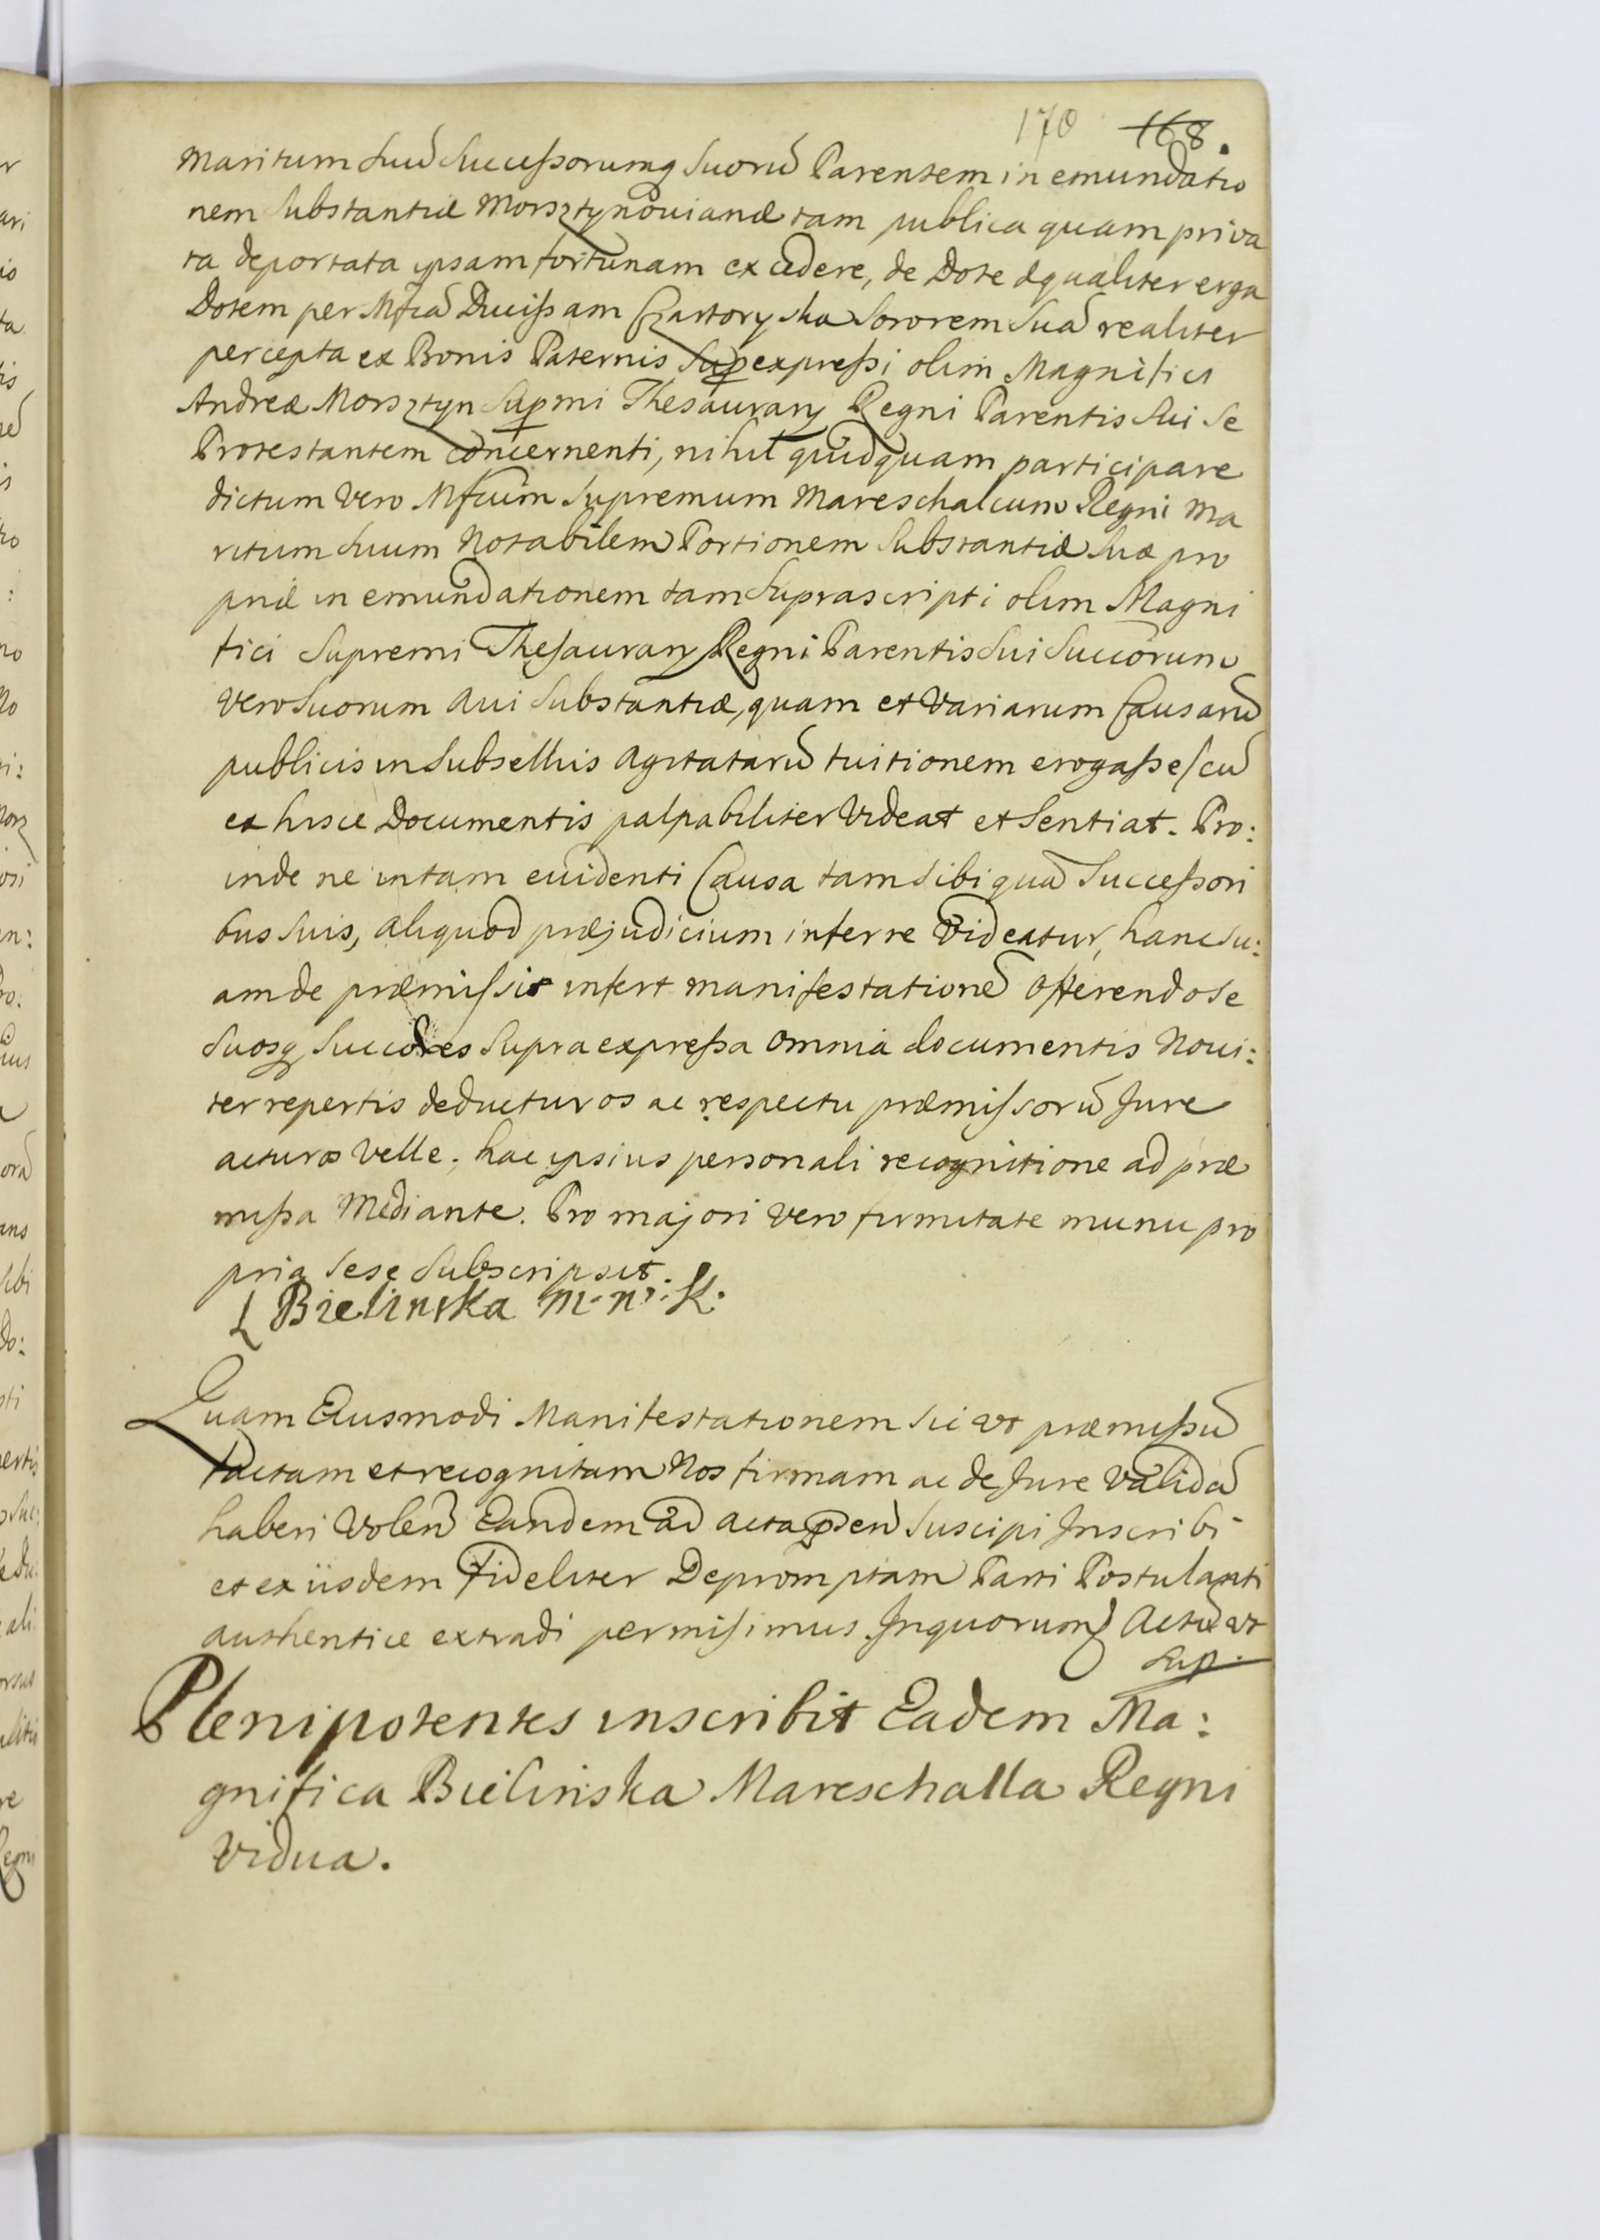 170 168.
Maritum Suū Successorumq Suorū Parentem in emundatio
nem Substantiæ Morsztynovianæ tam publica quam priva
ta deportata ipsam fortunam excedere, de Dote æqualiter erga
Dotem per Mfcā Ducissam Czartoryska Sororem Suā realiter
percepta ex Bonis Paternis Supexpressi olim Magnifici
Andreæ Morsztyn Supmi Thesaurary Regni Parentis Sui Se
Protestantem concernenti, nihil quidquam participare
dictum Vero Mfcum Supremum Mareschalcum Regni Ma
ritum Suum Notabilem Portionem Substantiæ Suæ pro
priæ in emundationem tam Suprascripti olim Magni
fici Supremi Thesaurary Regni Parentis Sui Succorum
Vero Suorum Avi Substantiæ, quam et Variarum Causarū
publicis in Subsellijs Agitatarū tuitionem erogasse
ex hisce Documentis palpabiliter Videat et Sentiat. Pro:
inde ne in tam evidenti Causa tam Sibi quā Successori
bus Suis, aliquod præjudicium inferre Videatur, hanc Su:
am de præmissis infert manifestationē Offerendo Se
Suosq Succores Supra expressa Omnia documentis Novi:
ter repertis deducturos ac respectu præmissorū Jure
acturos Velle. hac ipsius personali recognitione ad præ
missa Mediante. Pro majori Vero firmitate munu pro
pria Sese Subscripsit.
L Bielinska M. n. K.
Quam Eiusmodi Manifestationem Sic ut præmissū
factam et recognitam Nos firmam ac de Jure Validā
haberi Volen Eandem ad acta pñ Suscipi Inscribi
et ex iisdem Fideliter Depromptam Parti Postulanti
authentice extradi permisimus Inquorum Actū ut
Sup.
Plenipotentes inscribit Eadem Ma:
gnifica Bielinska Mareschalla Regni
Vidua.